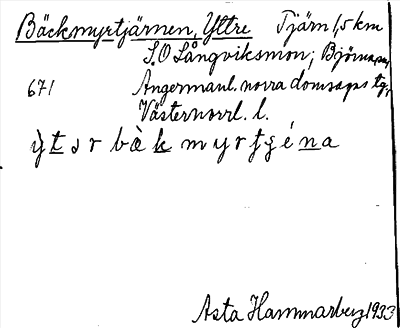 Bäckmyrtjärnen, Yttre Tjärn 1,5 km
S.O Långviksmon; Björna sn,
671 Ångermanl. norra domsaga tg,
Västernorrl. l.
ỳtər bàk myrtjéna
Asta Hammarberg 1933